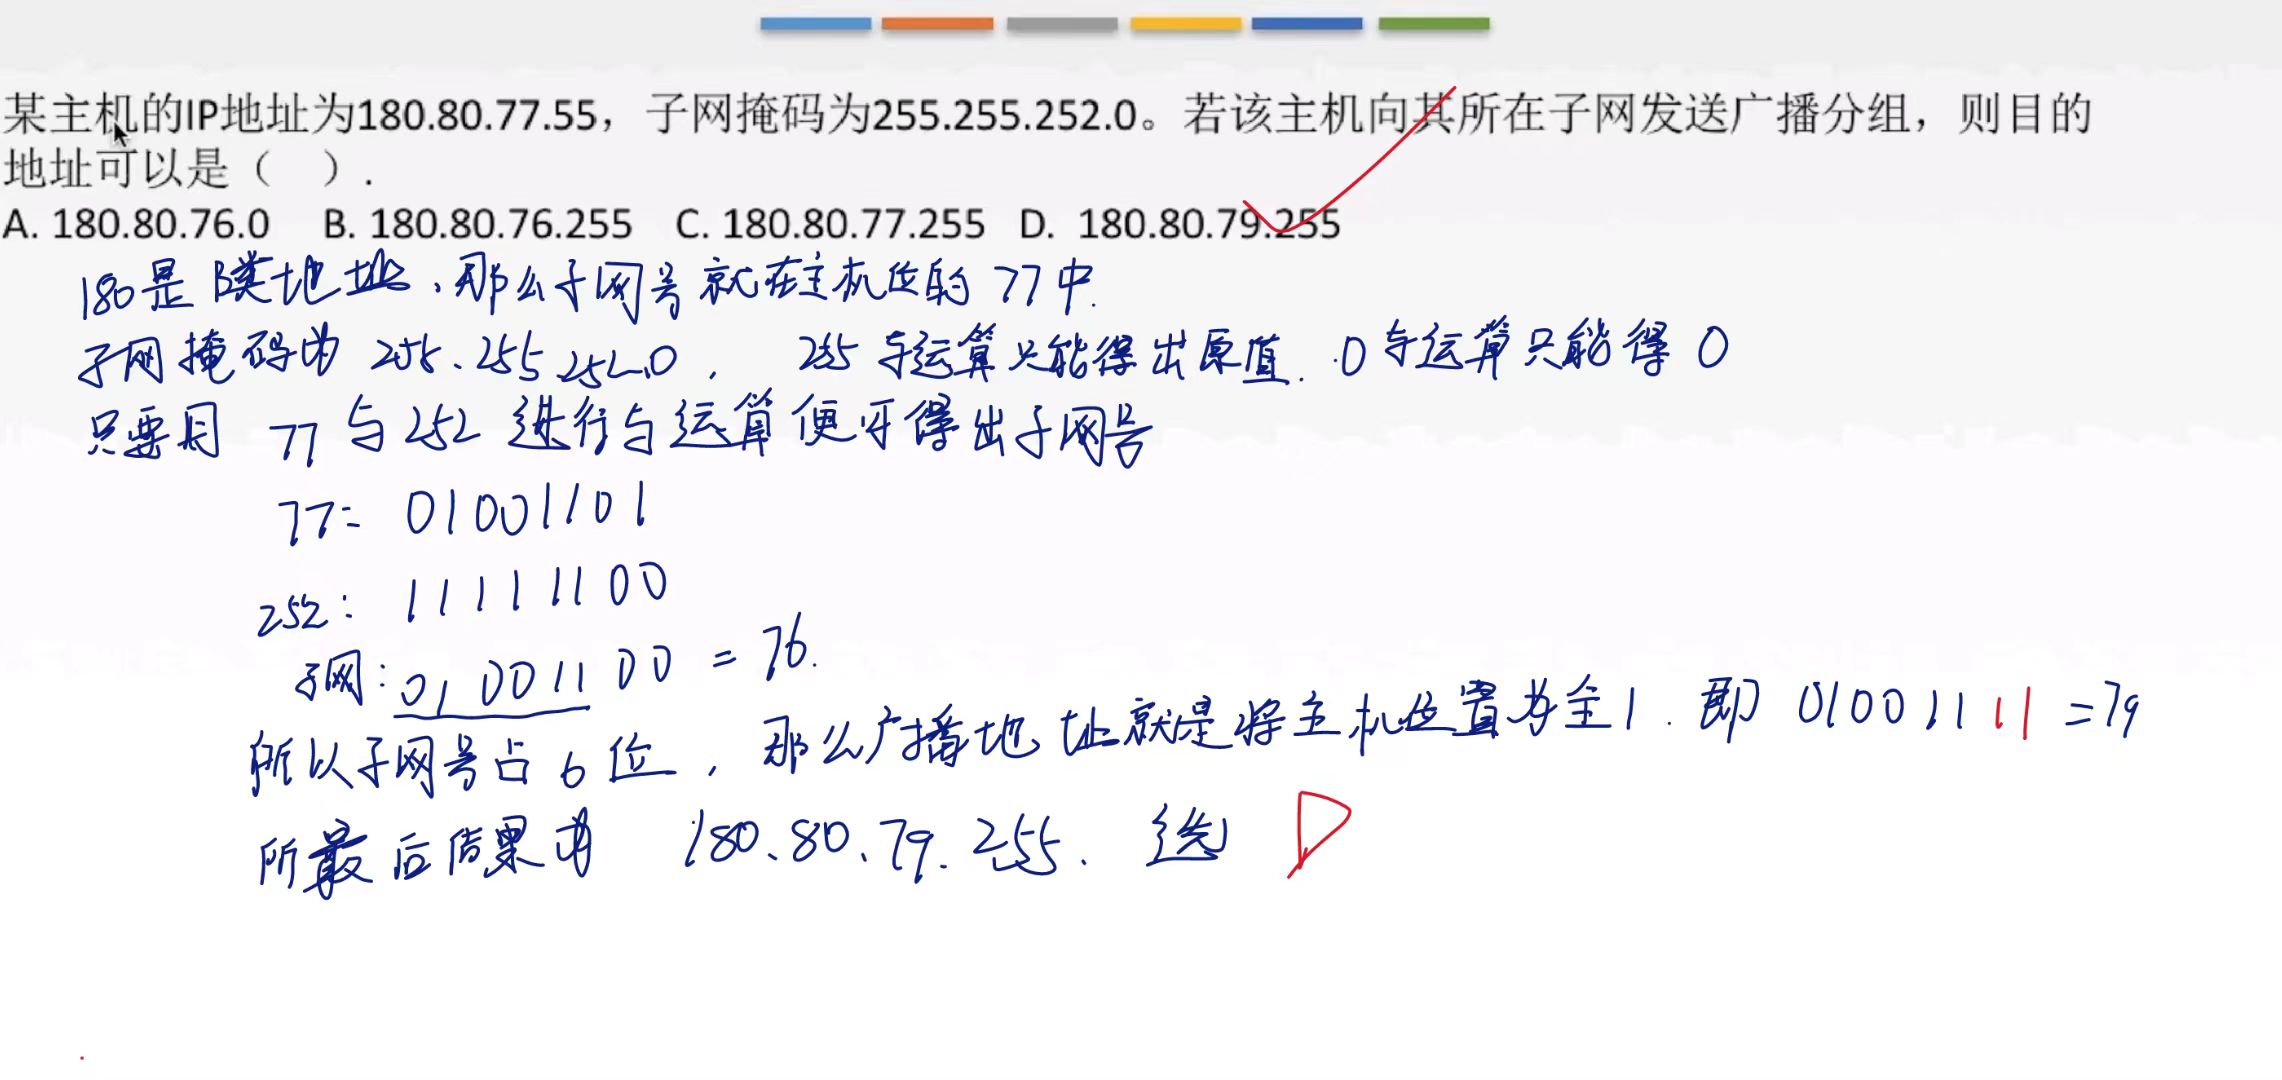 某主机的IP地址为180.80.77.55，子网掩码为255.255.252.0。若该主机向其所在子网发送广播分组，则目的
地址可以是（ ）.
A. 180.80.76.0 B. 180.80.76.255 C. 180.80.77.255 D. 180.80.79.255
180是B类地址，那么子网号就在主机位的77中.
子网掩码为 255.255.252.0， 255与运算只能得出原值. 0与运算只能得0
只要用 77与252 进行与运算便可得出子网号
77= 01001101
252: 11111100
子网: 01001100 = 76.
所以子网号占6位，那么广播地址就是将主机位置为全1. 即 01001111 =79
所最后结果为 180.80.79.255. 选 D